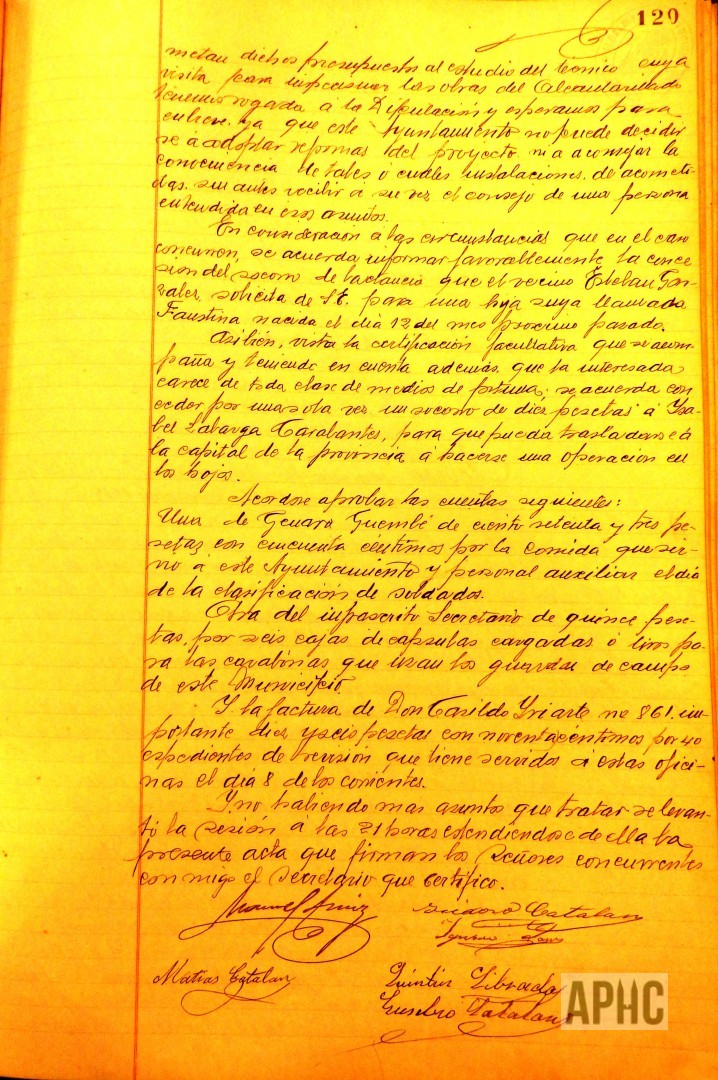 120
metan dichos presupuestos al estudio del técnico cuya
visita para inspeccionar las obras del Alcantarillado
tenemos rogada á la Diputación y esperamos para
en breve, ya que este Ayuntamiento no puede decidir
se á adoptar reformas del proyecto ni a aconsejar la
conveniencia de tales o cuales instalaciones de acometi
das, sin antes recibir a su vez el consejo de una persona
entendida en esos asuntos.
En consideración a las circunstancias que en el caso
concurren, se acuerda informar favorablemente la conce
sión del socorro de lactancia que el vecino Esteban Gon
zalez, solicita de S.E. para una hija suya llamada
Faustina nacida el día 12 del mes próximo pasado.
Asibien, vista la certificación facultativa que se acom
paña y teniendo en cuenta además, que la interesada
carece de toda clase de medios de fortuna, se acuerda con
ceder por una sola vez un socorro de diez pesetas á Isa
bel Labarga Carabantes, para que pueda trasladarse á
la capital de la provincia á hacerse una operación en
los hojos.
Acordose aprobar las cuentas siguientes:
Una de Genara Guembé de ciento setenta y tres pe
setas con cincuenta céntimos por la comida que sir
vió a este Ayuntamiento y personal auxiliar el día
de la clasificación de soldados.
Otra del infrascrito Secretario de quince pese
tas, por seis cajas de capsulas cargadas ó tiros pa
ra las carabinas que usan los guardas de campo
de este Municipio.
Y la factura de Don Casildo Iriarte nº 861. im
portante diez y seis pesetas con noventa centimos por 40
espedientes de revisión que tiene servidos á estas ofici
nas el día 8 de los corrientes.
Y no habiendo mas asuntos que tratar se levan
tó la sesión á las 21 horas estendiéndose de ella la
presente acta que firman los Señores concurrentes
con migo el Secretario que certifico.
Isidoro Catalan
Matias Catalan
Quintin Librada
Eusebio Catalan
APHC